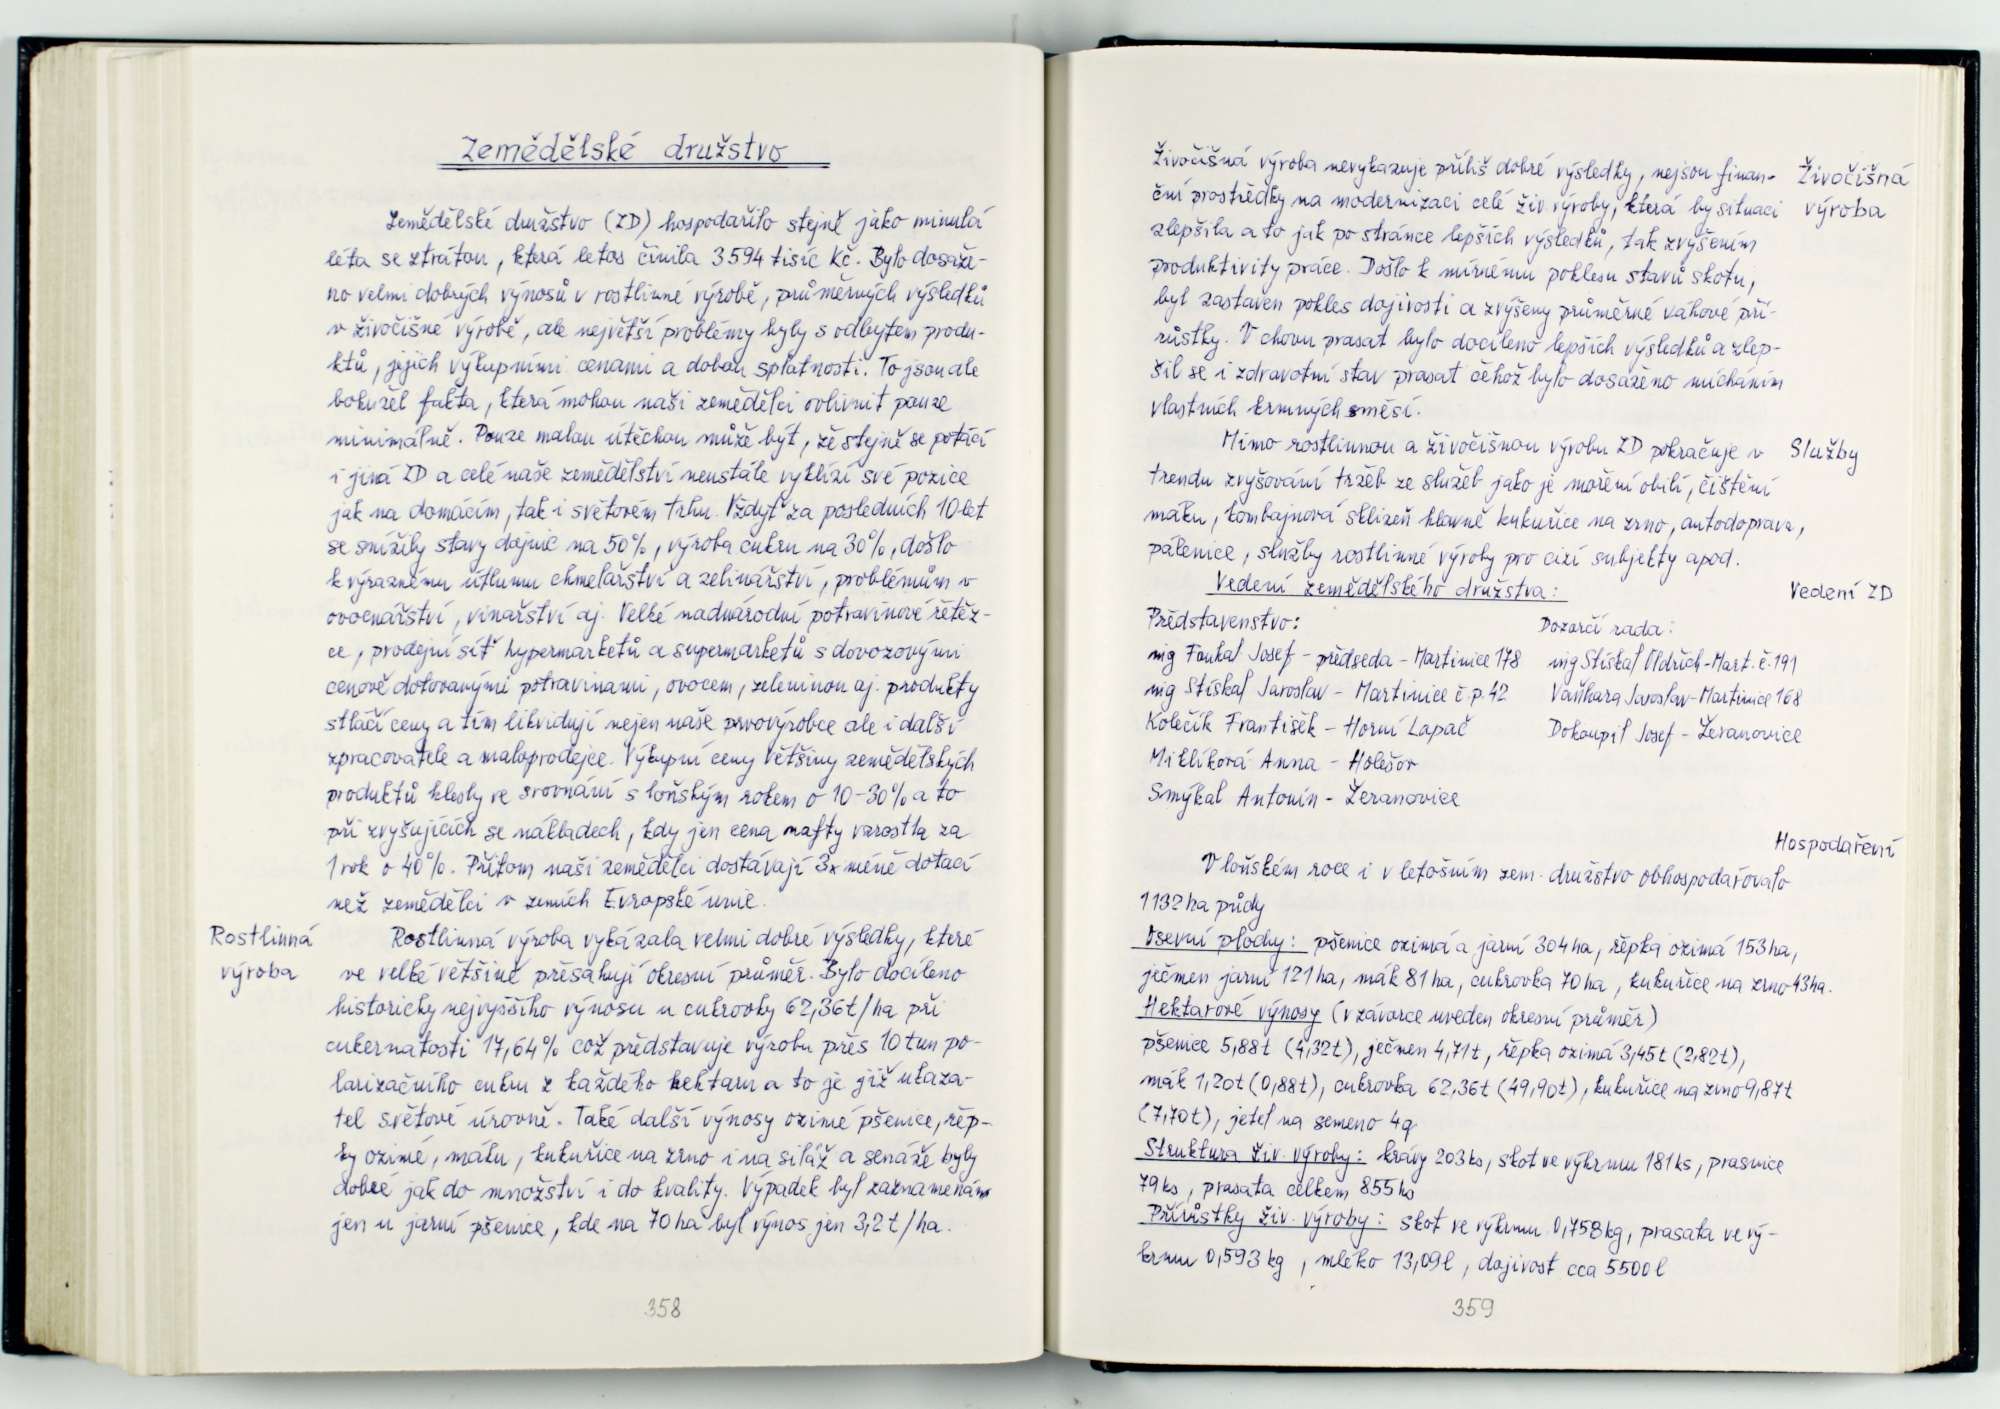 Zemědělské družstvo
Zemědělské družstvo (ZD) hospodařilo stejně jako minulá
léta se ztrátou, která letos činila 3594 tisíc Kč. Bylo dosaže-
no velmi dobrých výnosů v rostlinné výrobě, průměrných výsledků
v živočišné výrobě, ale největší problémy byly s odbytem produ-
ktů, jejich výkupními cenami a dobou splatnosti. To jsou ale
bohužel fakta, která mohou naši zemědělci ovlivnit pouze
minimálně. Pouze malou útěchou může být, že stejně se potácí
i jiná ZD a celé naše zemědělství neustále vyklízí své pozice
jak na domácím, tak i světovém trhu. Vždyť za posledních 10 let
se snížily stavy dojnic na 50%, výroba cukru na 30%, došlo
k výraznému útlumu chmelařství a zelinářství, problémům v
ovocnářství, vinařství aj. Velké nadnárodní potravinové řetěz-
ce, prodejní síť hypermarketů a supermarketů s dovozovými
cenově dotovanými potravinami, ovocem, zeleninou aj. produkty
stlačí ceny a tím likvidují nejen naše prvovýrobce ale i další
zpracovatele a maloprodejce. Výkupní ceny většiny zemědělských
produktů klesly ve srovnání s loňským rokem o 10-30% a to
při zvyšujících se nákladech, kdy jen cena nafty vzrostla za
1 rok o 40%. Přitom naši zemědělci dostávají 3x méně dotací
než zemědělci v zemích Evropské unie.
Rostlinná
výroba
Rostlinná výroba vykázala velmi dobré výsledky, které
ve velké většině přesahují okresní průměr. Bylo docíleno
historicky nejvyššího výnosu u cukrovky 62,36t/ha při
cukernatosti 17,64% což představuje výrobu přes 10 tun po-
larizačního cukru z každého hektaru a to je již ukaza-
tel světové úrovně. Také další výnosy ozimé pšenice, řep-
ky ozimé, máku, kukuřice na zrno i na siláž a senáže byly
dobré jak do množství i do kvality. Výpadek byl zaznamenán
jen u jarní pšenice, kde na 70 ha byl výnos jen 3,2 t/ha.
358
Živočišná výroba nevykazuje příliš dobré výsledky, nejsou finan-
ční prostředky na modernizaci celé živ. výroby, která by situaci
zlepšila a to jak po stránce lepších výsledků, tak zvýšením
produktivity práce. Došlo k mírnému poklesu stavů skotu,
byl zastaven pokles dojivosti a zvýšeny průměrné váhové pří-
růstky. V chovu prasat bylo docíleno lepších výsledků a zlep-
šil se i zdravotní stav prasat čehož bylo dosaženo mícháním
vlastních krmných směsí.
Živočišná
výroba
Mimo rostlinnou a živočišnou výrobu ZD pokračuje v
trendu zvyšování tržeb ze služeb jako je moření obilí, čištění
máku, kombajnová sklizeň hlavně kukuřice na zrno, autodoprava,
pálenice, služby rostlinné výroby pro cizí subjekty apod.
Služby
Vedení zemědělského družstva:
Vedení ZD
Představenstvo:
Dozorčí rada:
ing Foukal Josef - předseda - Martinice 178
ing Stískal Oldřich-Mart. č. 191
ing Stískal Jaroslav - Martinice č p. 42
Vaňhara Jaroslav-Martinice 168
Kolečík František - Horní Lapač
Dokoupil Josef - Žeranovice
Miklíková Anna - Holešov
Smýkal Antonín - Žeranovice
Hospodaření
V loňském roce i v letošním zem. družstvo obhospodařovalo
1132 ha půdy
Osevní plochy: pšenice ozimá a jarní 304 ha, řepka ozimá 153 ha,
ječmen jarní 121 ha, mák 81 ha, cukrovka 70 ha, kukuřice na zrno 43 ha.
Hektarové výnosy (v závorce uveden okresní průměr)
pšenice 5,88t (4,32t), ječmen 4,71t, řepka ozimá 3,45t (2,82t),
mák 1,20t (0,88t), cukrovka 62,36t (49,90t), kukuřice na zrno 9,87t
(7,70t), jetel na semeno 4q
Struktura živ. výroby: krávy 203 ks, skot ve výkrmu 181 ks, prasnice
79 ks, prasata celkem 855 ks
Přírůstky živ. výroby: skot ve výkrmu 0,758kg, prasata ve vý-
krmu 0,593 kg, mléko 13,09l, dojivost cca 5500 l
359